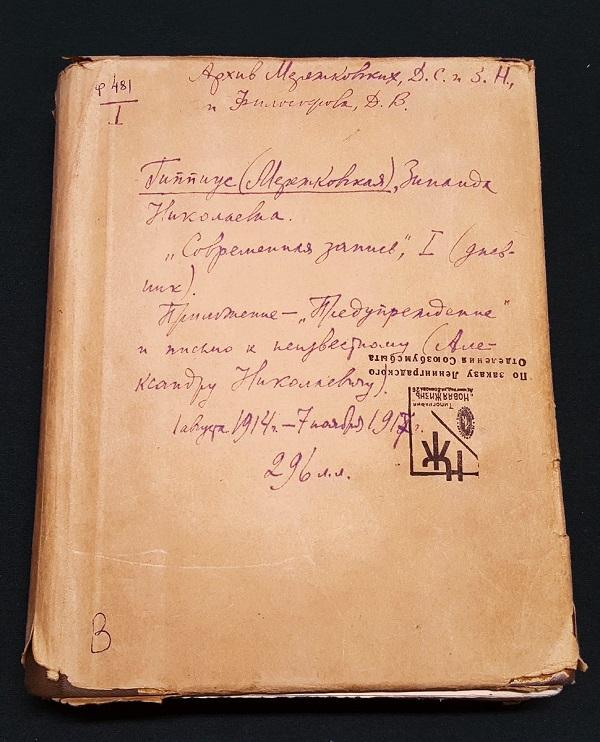 Ф 481
I
Архив Мережковских, Д.С. и З.Н.,
и Философова, Д.В.
Гиппиус (Мережковская), Зинаида
Николаевна.
"Современная запись", I (днев-
ник).
Приложение – "Предупреждение"
и письмо к неизвестному (Але-
ксандру Николаевичу).
1 августа 1914 г. – 7 ноября 1917 г.
296 л.л.
По заказу Ленинградского
Отделения Союзбумсбыта
Типография
"НОВАЯ ЖИЗНЬ"
НЖ
В